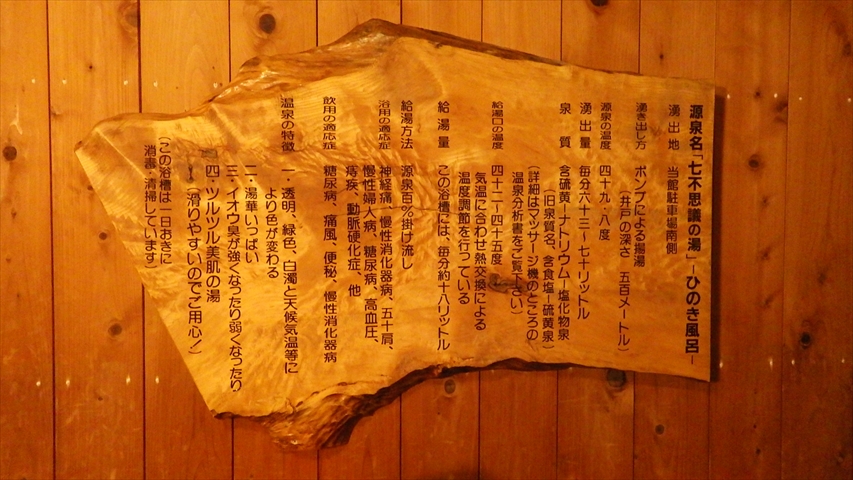 源泉名「七不思議の湯」―ひのき風呂―
湧出地　当館駐車場南側
湧き出し方　ポンプによる揚湯
（井戸の深さ　五百メートル）
源泉の温度　四十九・八度
湧出量　毎分六十三～七十リットル
泉質　含硫黄―ナトリウム―塩化物泉
（旧泉質名、含食塩―硫黄泉）
（詳細はマッサージ機のところの
温泉分析書をご覧下さい）
給湯口の温度　四十二～四十五度
気温に合わせ熱交換による
温度調節を行っている
給湯量　この浴槽には、毎分約十八リットル
給湯方法　源泉百％掛け流し
浴用の適応症　神経痛、慢性消化器病、五十肩、
慢性婦人病、糖尿病、高血圧、
痔疾、動脈硬化症、他
飲用の適応症　糖尿病、痛風、便秘、慢性消化器病
温泉の特徴　一・透明、緑色、白濁と天候気温等に
より色が変わる
二・湯華いっぱい
三・イオウ臭が強くなったり弱くなったり
四・ツルツル美肌の湯
（滑りやすいのでご用心！）
（この浴槽は一日おきに
消毒・清掃しています）